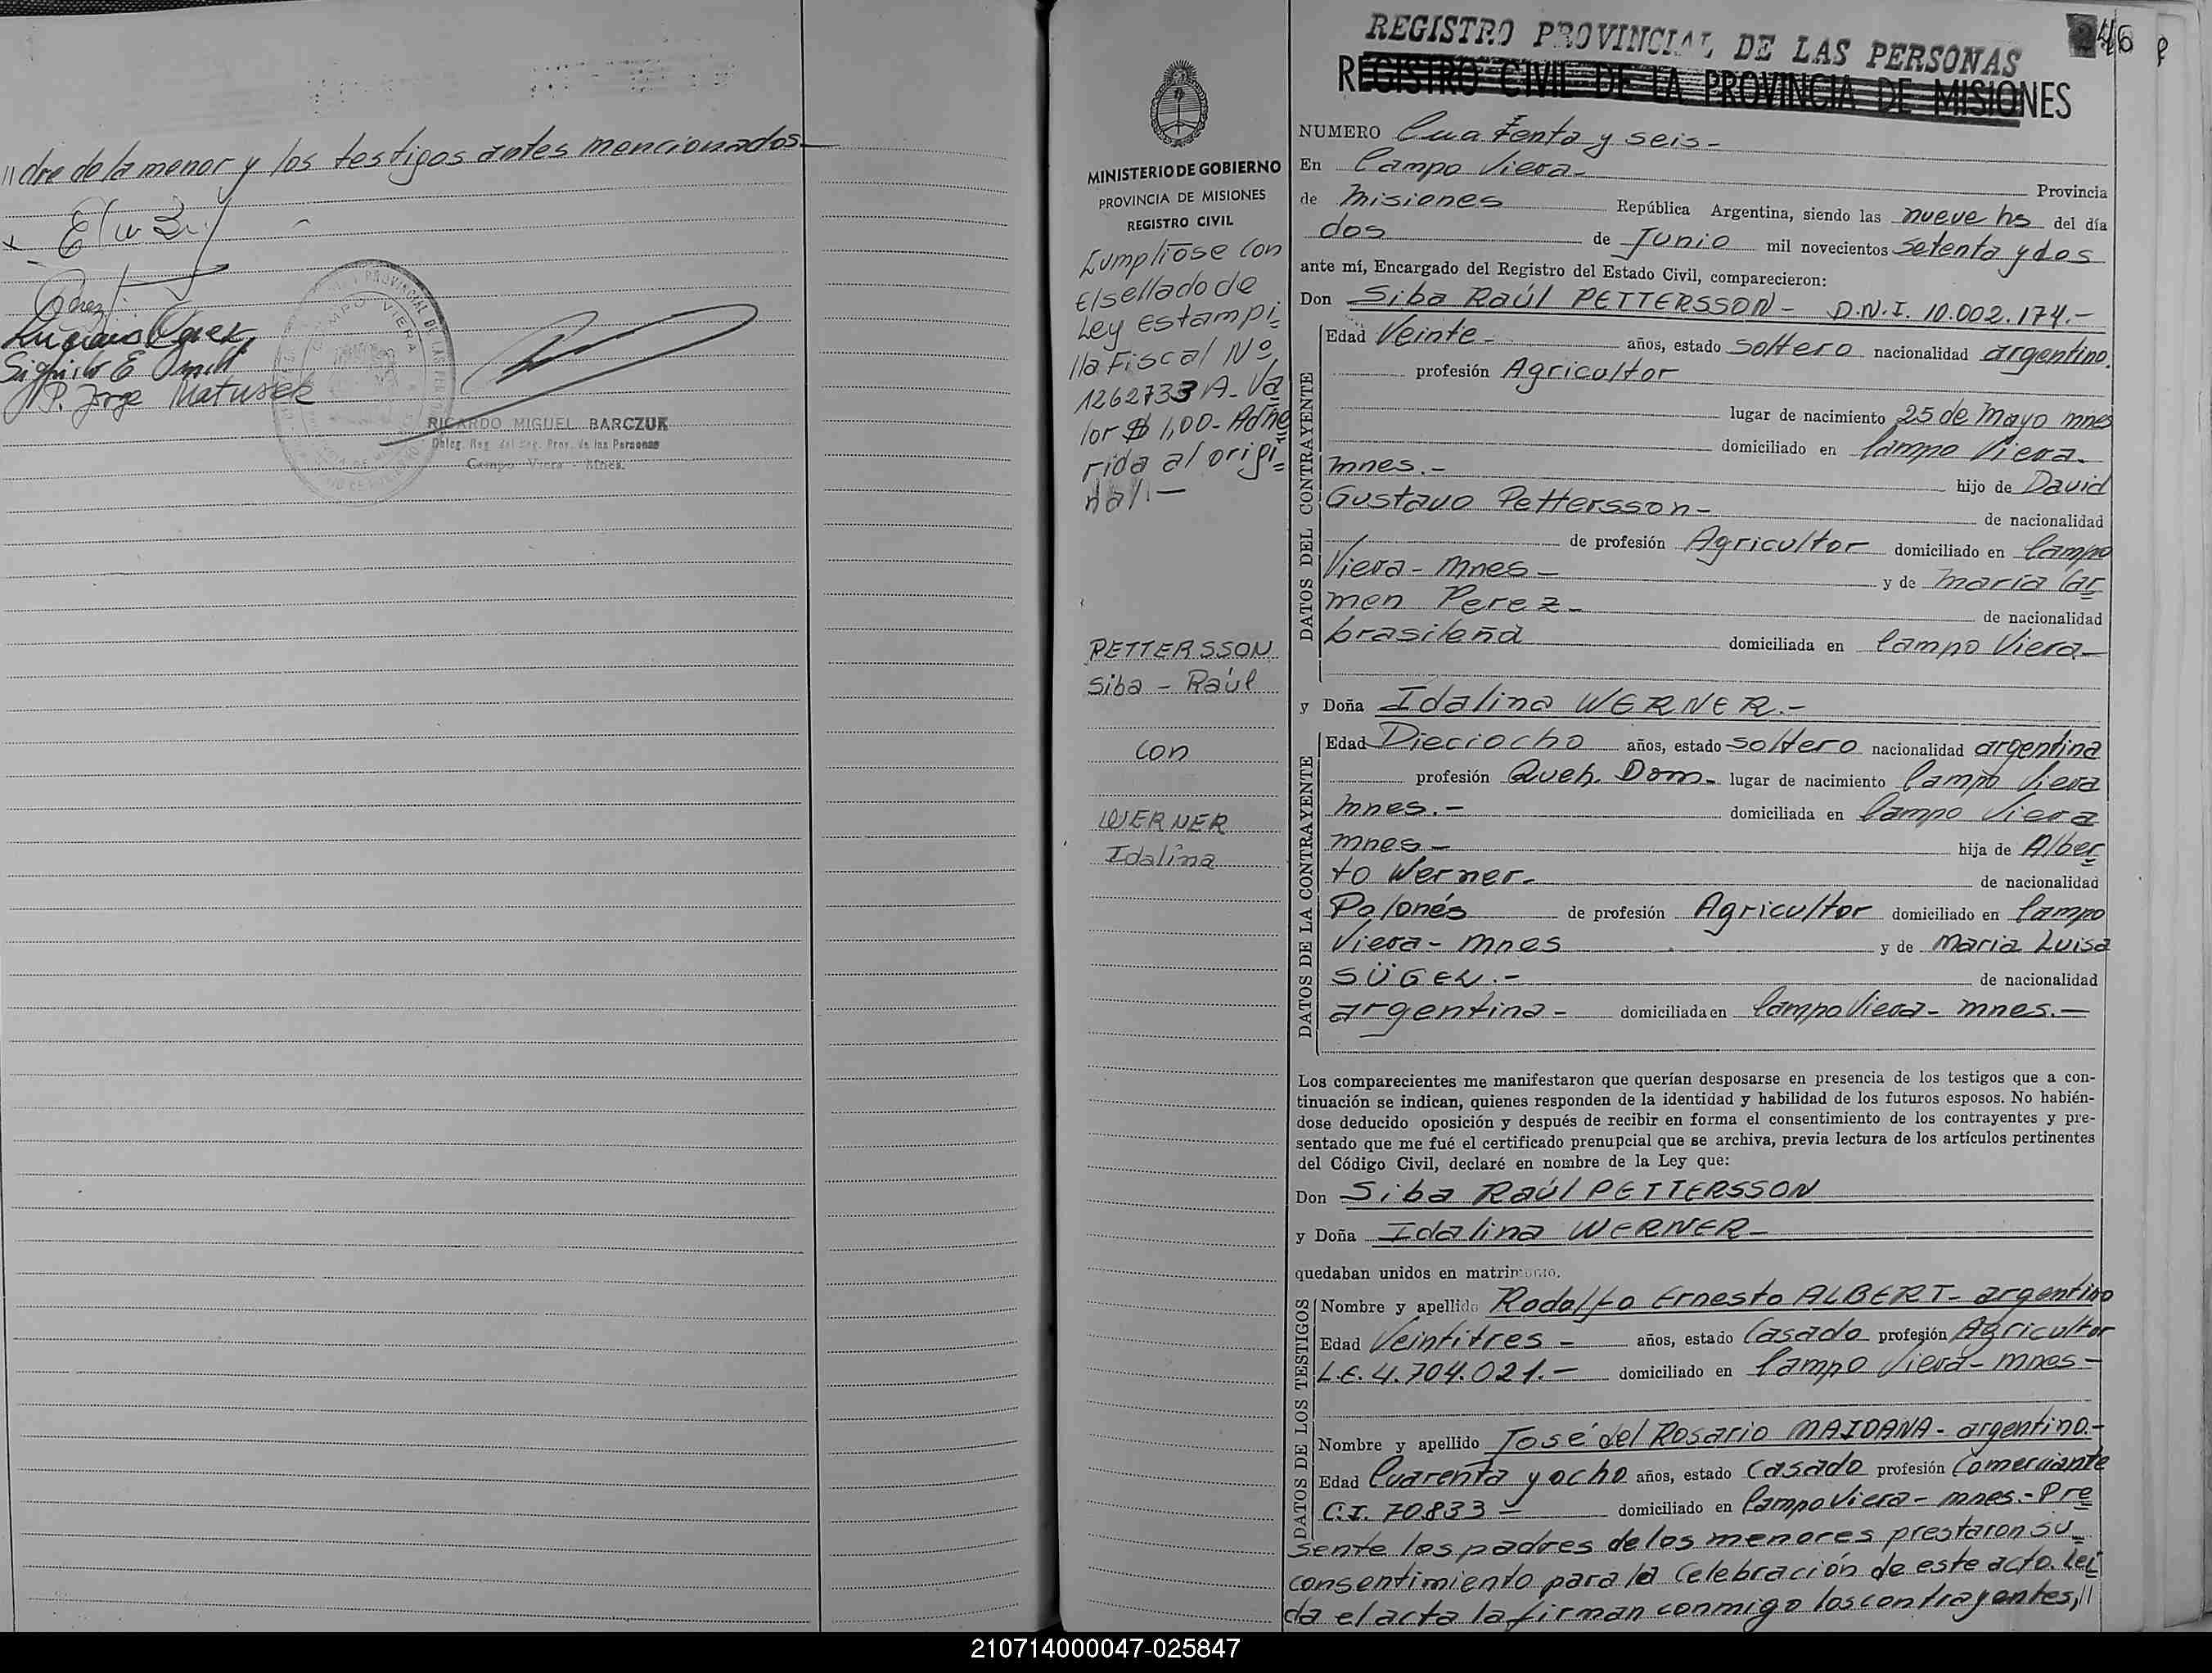 //dre de la menor y los testigos antes mencionados—
P. Jorge Matusek
CAMPO VIERA
RICARDO MIGUEL BARCZUK
Deleg. Reg. del Reg. Prov. de las Personas
Campo Viera - Mnes.
MINISTERIO DE GOBIERNO
PROVINCIA DE MISIONES
REGISTRO CIVIL
Cumpliose con
el sellado de
Ley estampi=
lla Fiscal Nº
1262733 A- Va
lor $ 1,00- Adhe
rida al origi=
nal.—
PETTERSSON
Siba - Raúl
con
WERNER
Idalina
REGISTRO PROVINCIAL DE LAS PERSONAS
46
REGISTRO CIVIL DE LA PROVINCIA DE MISIONES
NUMERO Cuarenta y seis-
En Campo Viera- Provincia
de Misiones República Argentina, siendo las nueve hs del día
dos de Junio mil novecientos setenta y dos
ante mí, Encargado del Registro del Estado Civil, comparecieron:
Don Siba Raúl PETTERSSON- D.N.I. 10.002.174.-
DATOS DEL CONTRAYENTE
Edad Veinte- años, estado soltero nacionalidad argentino.
profesión Agricultor
lugar de nacimiento 25 de Mayo mnes
domiciliado en Campo Viera-
mnes.- hijo de David
Gustavo Pettersson- de nacionalidad
de profesión Agricultor domiciliado en Campo
Viera- Mnes- y de María Car
men Perez- de nacionalidad
brasileña domiciliada en Campo Viera-
y Doña Idalina WERNER.-
DATOS DE LA CONTRAYENTE
Edad Dieciocho años, estado soltero nacionalidad argentina
profesión Queh. Dom- lugar de nacimiento Campo Viera
mnes.- domiciliada en Campo Viera
mnes- hija de Alber
to Werner- de nacionalidad
Polonés de profesión Agricultor domiciliado en Campo
Viera- mnes y de Maria Luisa
SÜGEL.- de nacionalidad
argentina- domiciliada en Campo Viera- mnes.—
Los comparecientes me manifestaron que querían desposarse en presencia de los testigos que a con-
tinuación se indican, quienes responden de la identidad y habilidad de los futuros esposos. No habién-
dose deducido oposición y después de recibir en forma el consentimiento de los contrayentes y pre-
sentado que me fué el certificado prenupcial que se archiva, previa lectura de los artículos pertinentes
del Código Civil, declaré en nombre de la Ley que:
Don Siba Raúl PETTERSSON
y Doña Idalina WERNER-
quedaban unidos en matrimonio.
DATOS DE LOS TESTIGOS
Nombre y apellido Rodolfo Ernesto ALBERT- argentino
Edad Veintitres- años, estado Casado profesión Agricultor
L.E. 4.704.021.- domiciliado en Campo Viera- mnes-
Nombre y apellido José del Rosario MAIDANA- argentino.-
Edad Cuarenta y ocho años, estado casado profesión Comerciante
C.I. 70.833- domiciliado en Campo Viera- mnes.- Pre
sente los padres de los menores prestaron su
consentimiento para la celebración de este acto. Leí
da el acta la firman conmigo los contrayentes,//
210714000047-025847